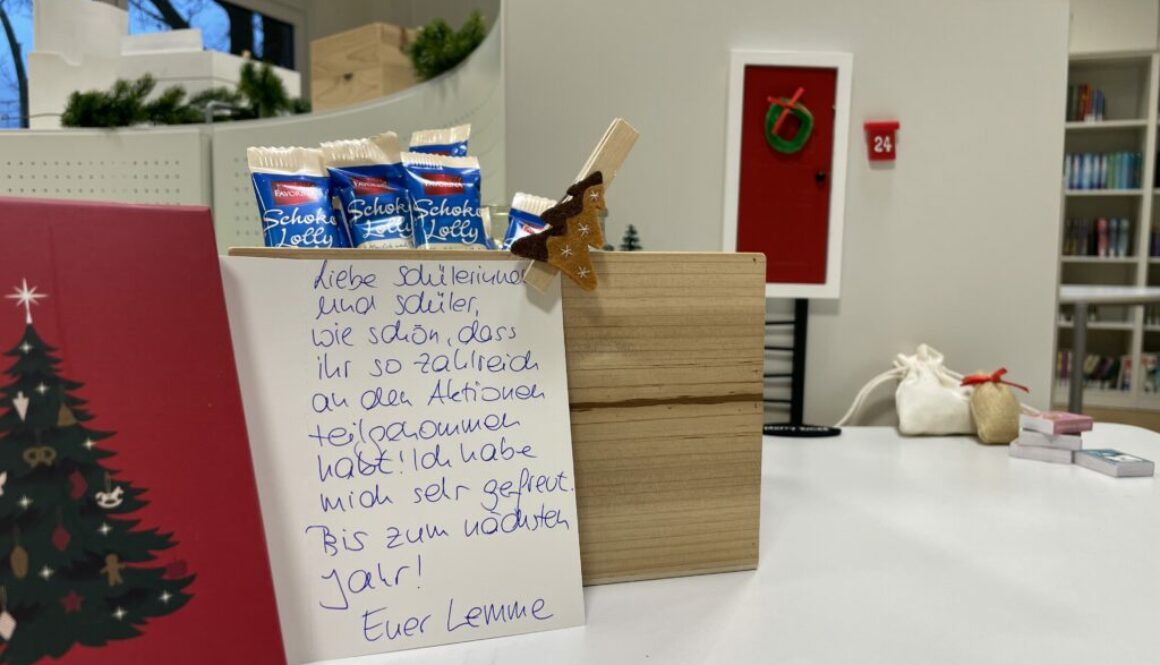 FAVORINA
Schoko
Lolly
FAVORINA
Schoko
Lolly
FAVORINA
Schoko
Lolly
24
Liebe Schülerinnen
und Schüler,
wie schön, dass
ihr so zahlreich
an den Aktionen
teilgenommen
habt! Ich habe
mich sehr gefreut.
Bis zum nächsten
Jahr!
Euer Lemme